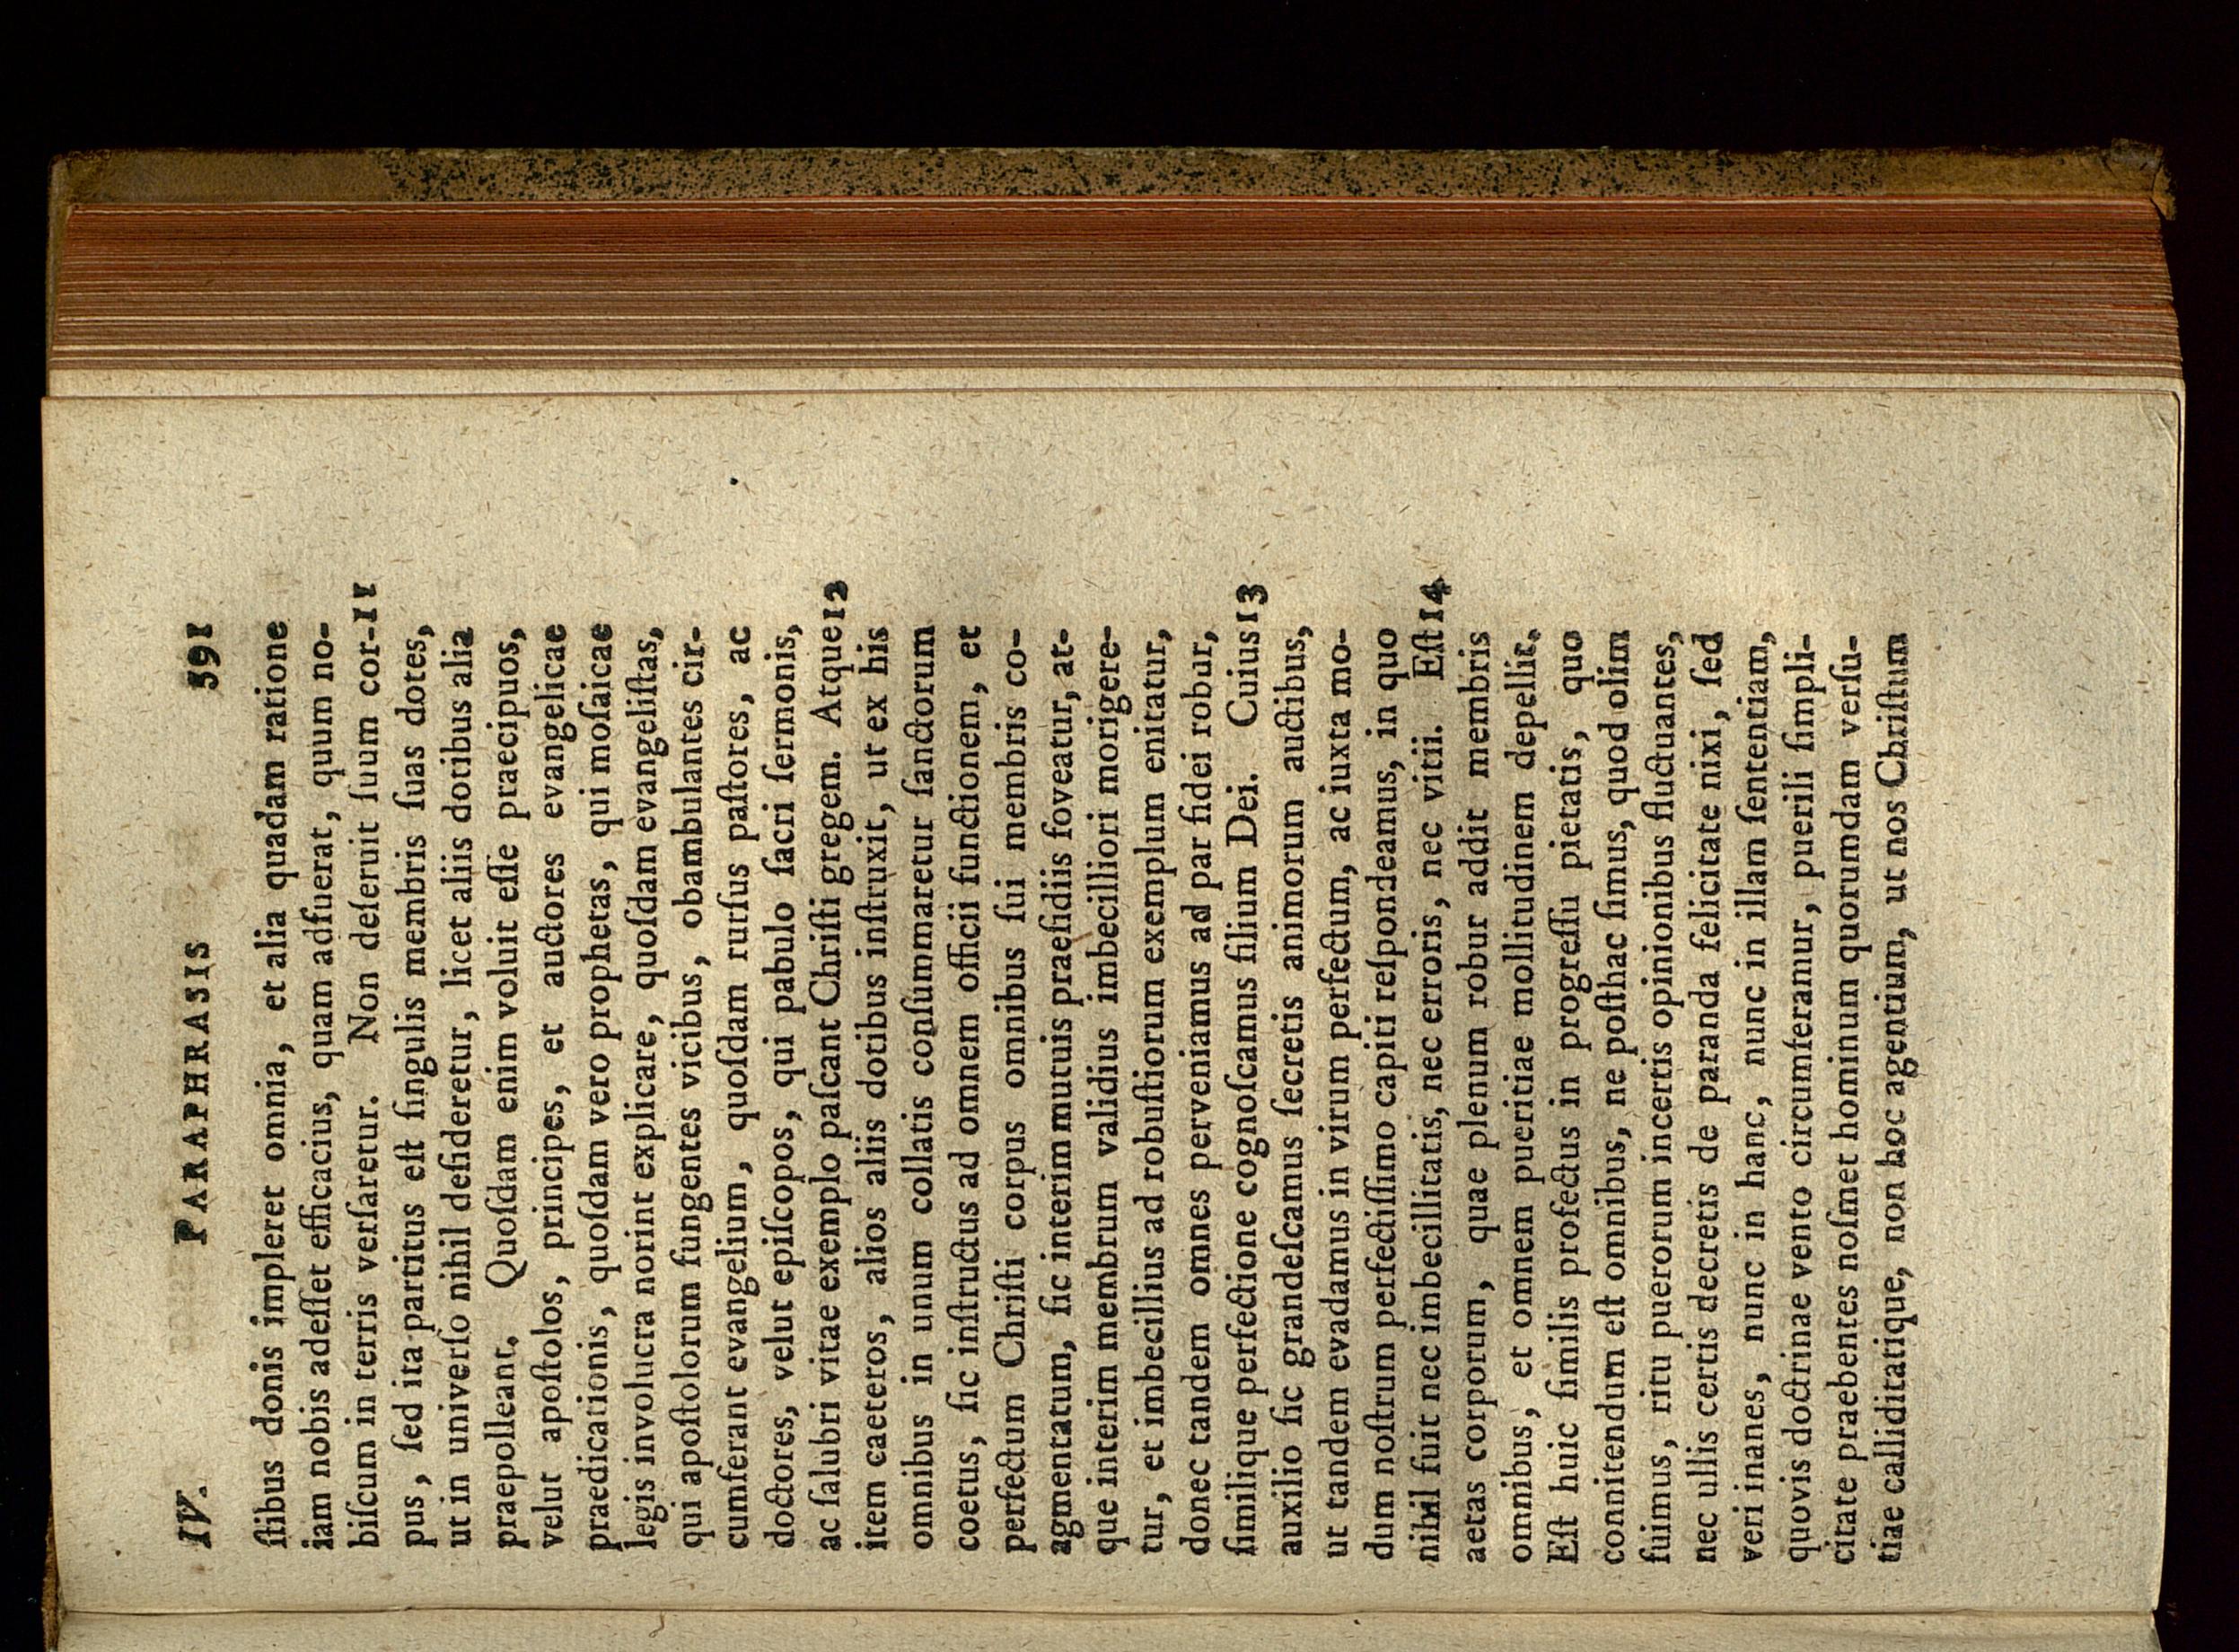 IV. PARAPHRASIS 391
ſtibus donis impleret omnia, et alia quadam ratione
iam nobis adeſſet efficacius, quam adfuerat, quum no-
biſcum in terris verſaretur. Non deſeruit ſuum cor-11
pus, ſed ita partitus eſt ſingulis membris ſuas dotes,
ut in univerſo nihil deſideretur, licet aliis dotibus alia
praepolleant. Quoſdam enim voluit eſſe praecipuos,
velut apoſtolos, principes, et auctores evangelicae
praedicationis, quoſdam vero prophetas, qui moſaicae
legis involucra norint explicare, quoſdam evangeliſtas,
qui apoſtolorum fungentes vicibus, obambulantes cir-
cumferant evangelium, quoſdam rurſus paſtores, ac
doctores, velut epiſcopos, qui pabulo ſacri ſermonis,
ac ſalubri vitae exemplo paſcant Chriſti gregem. Atque 12
item caeteros, alios aliis dotibus inſtruxit, ut ex his
omnibus in unum collatis conſummaretur ſanctorum
coetus, ſic inſtructus ad omnem officii functionem, et
perfectum Chriſti corpus omnibus ſui membris co-
agmentatum, ſic interim mutuis praeſidiis foveatur, at-
que interim membrum validius imbecilliori morigere-
tur, et imbecillius ad robuſtiorum exemplum enitatur,
donec tandem omnes perveniamus ad par fidei robur,
ſimilique perfectione cognoſcamus filium Dei. Cuius 13
auxilio ſic grandeſcamus ſecretis animorum auctibus,
ut tandem evadamus in virum perfectum, ac iuxta mo-
dum noſtrum perfectiſſimo capiti reſpondeamus, in quo
nihil fuit nec imbecillitatis, nec erroris, nec vitii. Eſt 14
aetas corporum, quae plenum robur addit membris
omnibus, et omnem pueritiae mollitudinem depellit.
Eſt huic ſimilis profectus in progreſſu pietatis, quo
connitendum eſt omnibus, ne poſthac ſimus, quod olim
fuimus, ritu puerorum incertis opinionibus fluctuantes,
nec ullis certis decretis de paranda felicitate nixi, ſed
veri inanes, nunc in hanc, nunc in illam ſententiam,
quovis doctrinae vento circumferamur, puerili ſimpli-
citate praebentes noſmet hominum quorumdam verſu-
tiae calliditatique, non hoc agentium, ut nos Chriſtum